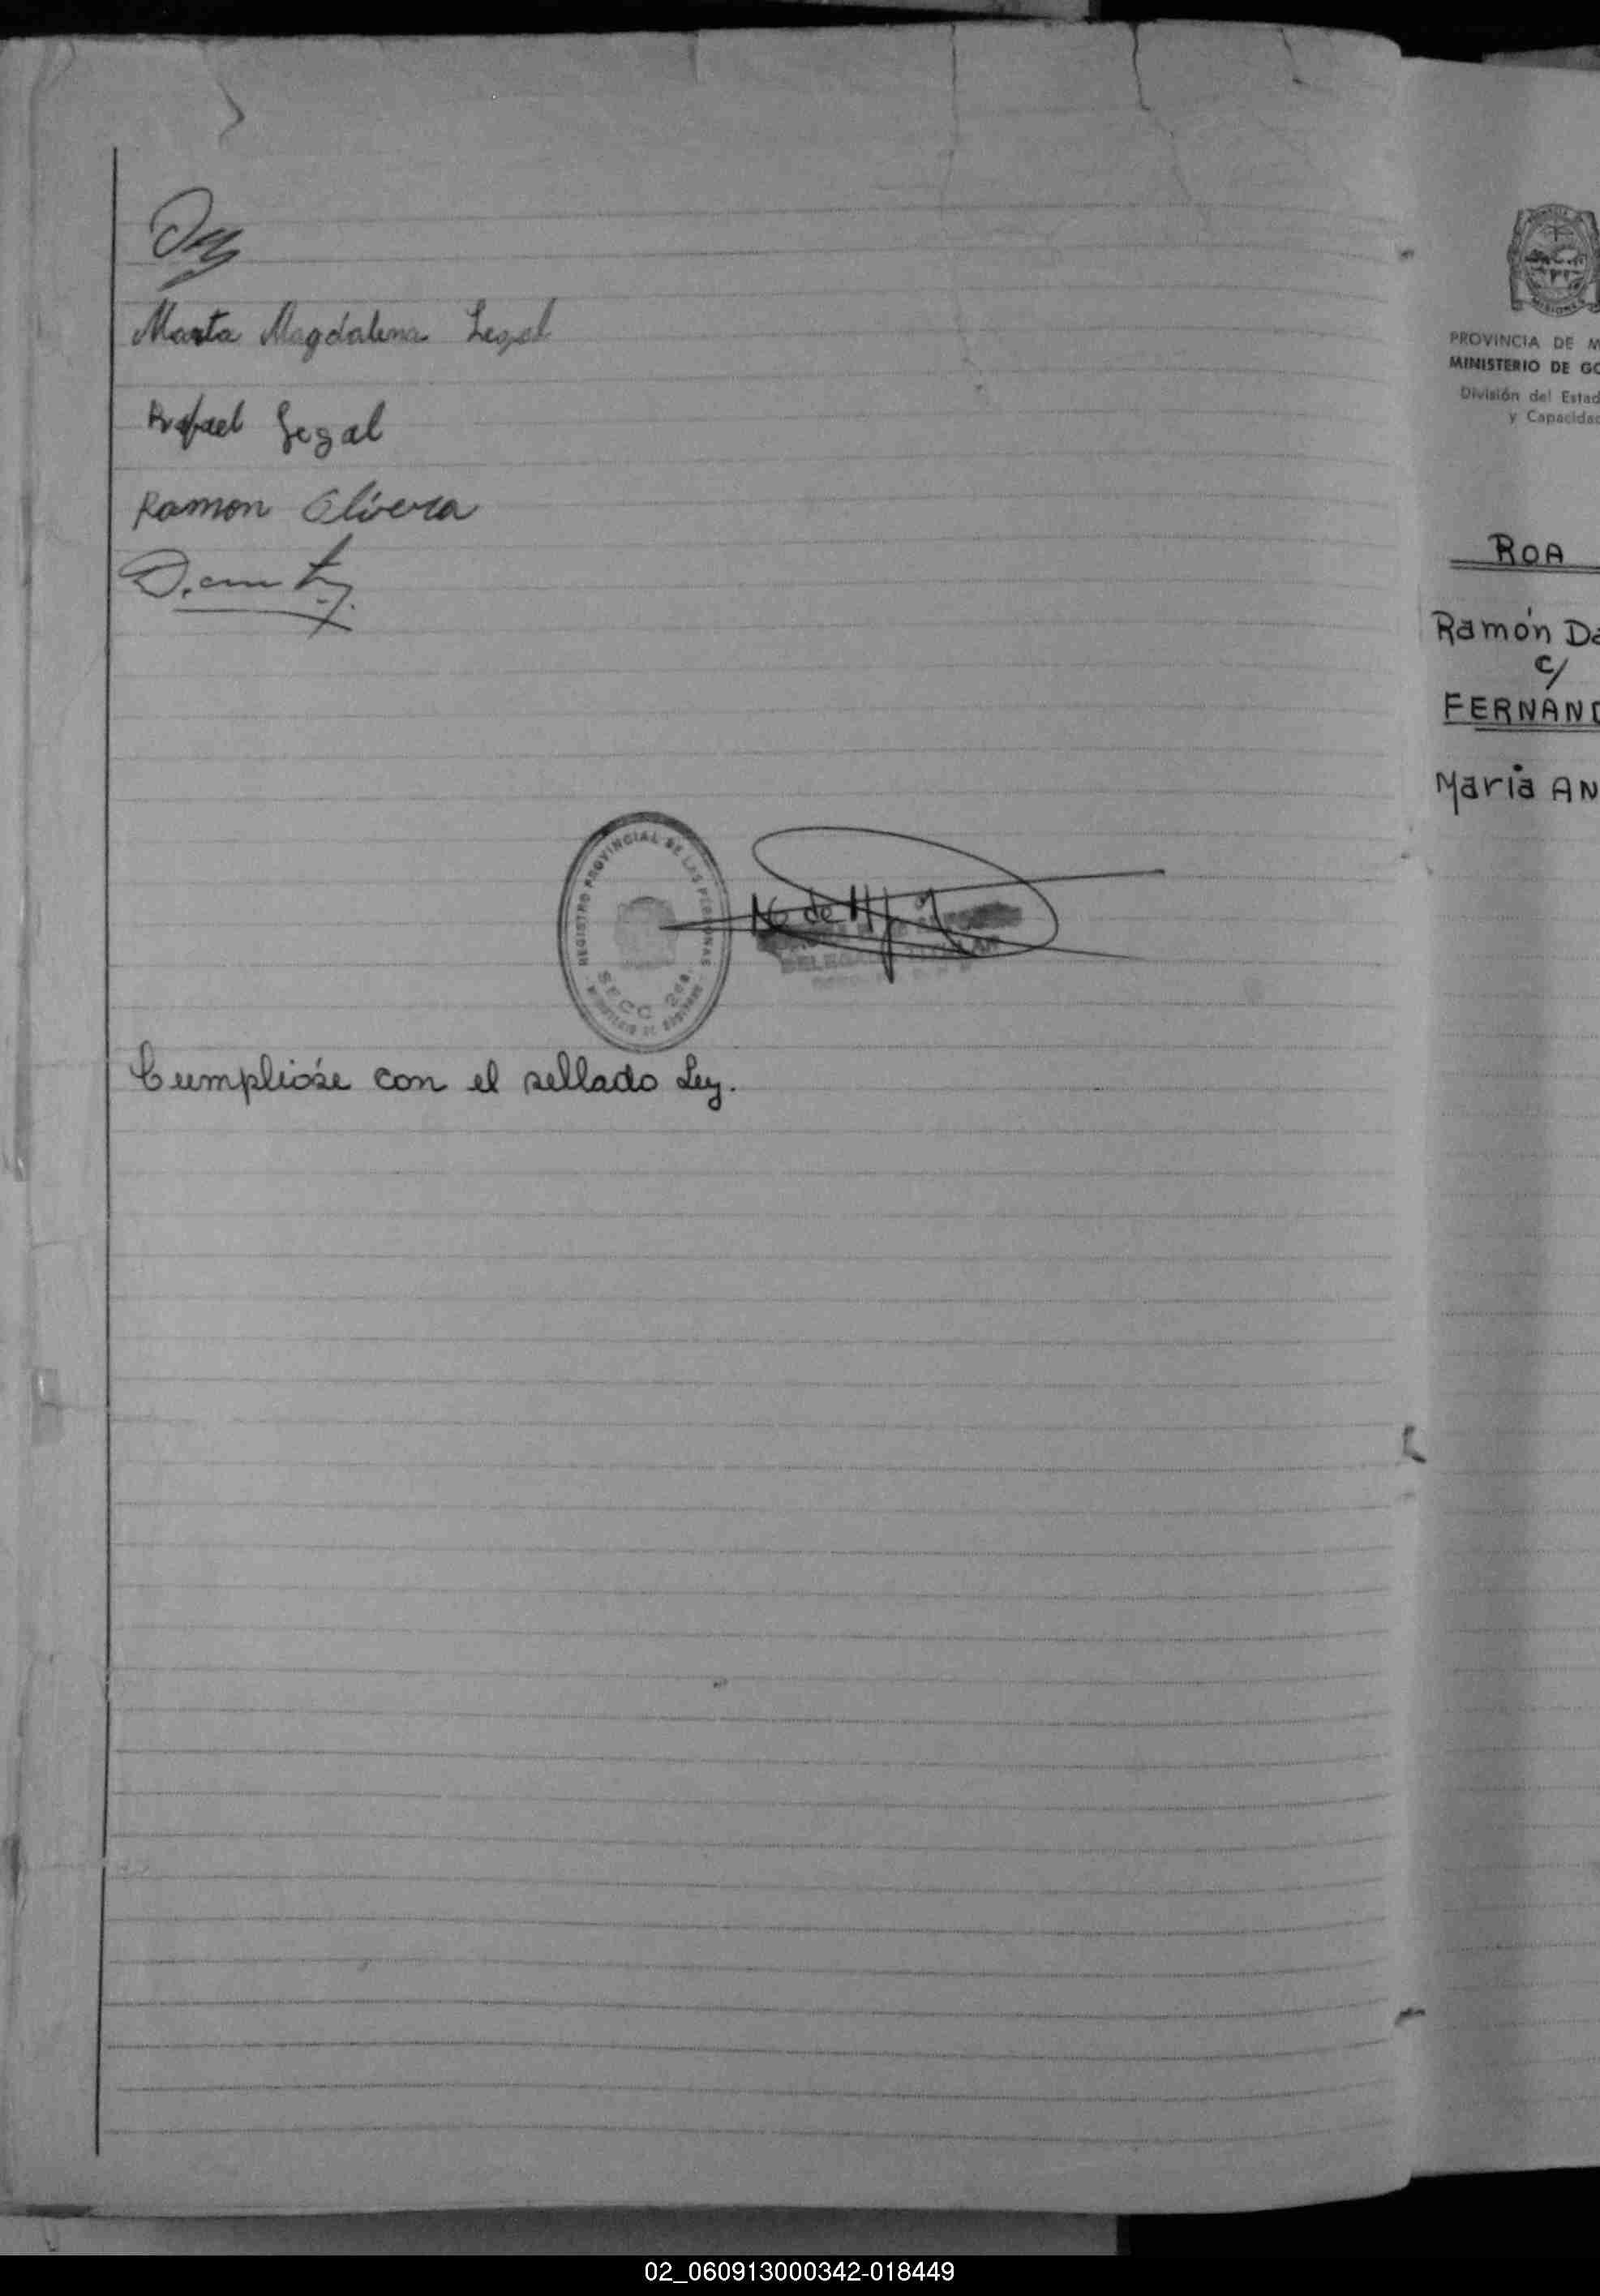 Marta Magdalena Legal
Rafael Legal
Ramon Olivera
REGISTRO PROVINCIAL DE LAS PERSONAS
SECC 2da.
Cumplióse con el sellado Ley.
PROVINCIA DE M
MINISTERIO DE GO
División del Estad
y Capacidad
ROA
Ramón Da
c/
FERNÁND
María AN
02_060913000342-018449